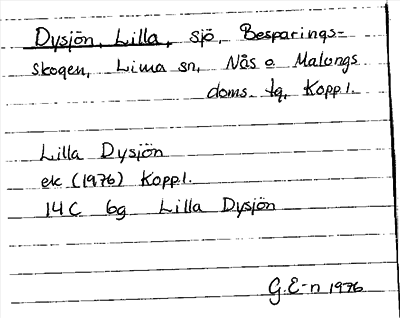 Dysjön, Lilla, sjö, Besparings=
skogen, Lima sn, Nås o Malungs
doms. tg, Kopp.l.
Lilla Dysjön
ek (1976) Kopp.l.
14C 6g Lilla Dysjön
G.E-n 1976